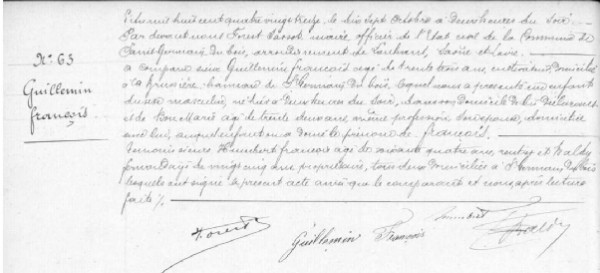 N° 63
Guillemin
François
L'an mil huit cent quatre vingt treize, le dix sept Octobre à Deux heures du Soir
Par devant nous Forest maire, officier de l'Etat civil de la Commune de
Saint Germain du bois, arrondissement de Louhans, Saône et Loire
a comparu sieur Guillemin François agé de trente ans, cultivateur, domicilié
à la hameau de St Germain du bois, lequel nous a présenté un enfant
du sexe masculin, né à heures du Soir, en son domicile de lui
et de Marie agée de trente deux ans, même profession, son épouse, domiciliée
avec lui, auquel enfant il a donné le prénom de françois.
sieurs Humbert françois agé de soixante quatre ans, rentier et Maldy
agé de vingt cinq ans, propriétaire, tous deux domiciliés à St Germain du bois
lesquels ont signé le présent acte ainsi que le comparant et nous, après lecture
faite /.
Forest Guillemin François Humbert